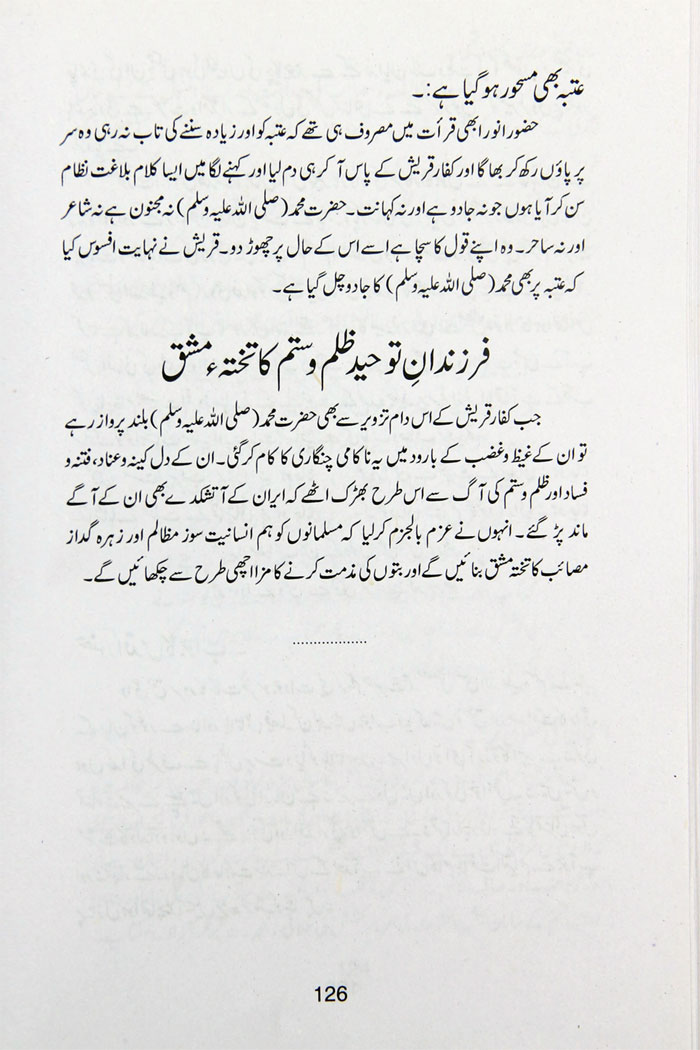 عتبہ بھی مسحور ہوگیا ہے:۔
حضور انور ابھی قرأت میں مصروف ہی تھے کہ عتبہ کو اور زیادہ سننے کی تاب نہ رہی وہ سر
پر پاؤں رکھ کر بھاگا اور کفار قریش کے پاس آ کر ہی دم لیا اور کہنے لگا میں ایسا کلام بلاغت نظام
سن کر آیا ہوں جو نہ جادو ہے اور نہ کہانت۔ حضرت محمد (صلی اللہ علیہ وسلم) نہ مجنون ہے نہ شاعر
اور نہ ساحر۔ وہ اپنے قول کا سچا ہے اسے اس کے حال پر چھوڑ دو۔ قریش نے نہایت افسوس کیا
کہ عتبہ پر بھی محمد (صلی اللہ علیہ وسلم) کا جادو چل گیا ہے۔
فرزندانِ توحید ظلم وستم کا تختہء مشق
جب کفار قریش کے اس دام تزویر سے بھی حضرت محمد (صلی اللہ علیہ وسلم) بلند پرواز رہے
تو ان کے غیظ وغضب کے بارود میں یہ ناکامی چنگاری کا کام کر گئی۔ ان کے دل کینہ وعناد، فتنہ و
فساد اور ظلم وستم کی آگ سے اس طرح بھڑک اٹھے کہ ایران کے آتشکدے بھی ان کے آگے
ماند پڑ گئے۔ انہوں نے عزم بالجزم کرلیا کہ مسلمانوں کو ہم انسانیت سوز مظالم اور زہرہ گداز
مصائب کا تختہ مشق بنائیں گے اور بتوں کی مذمت کرنے کا مزا اچھی طرح سے چکھائیں گے۔
..................
126